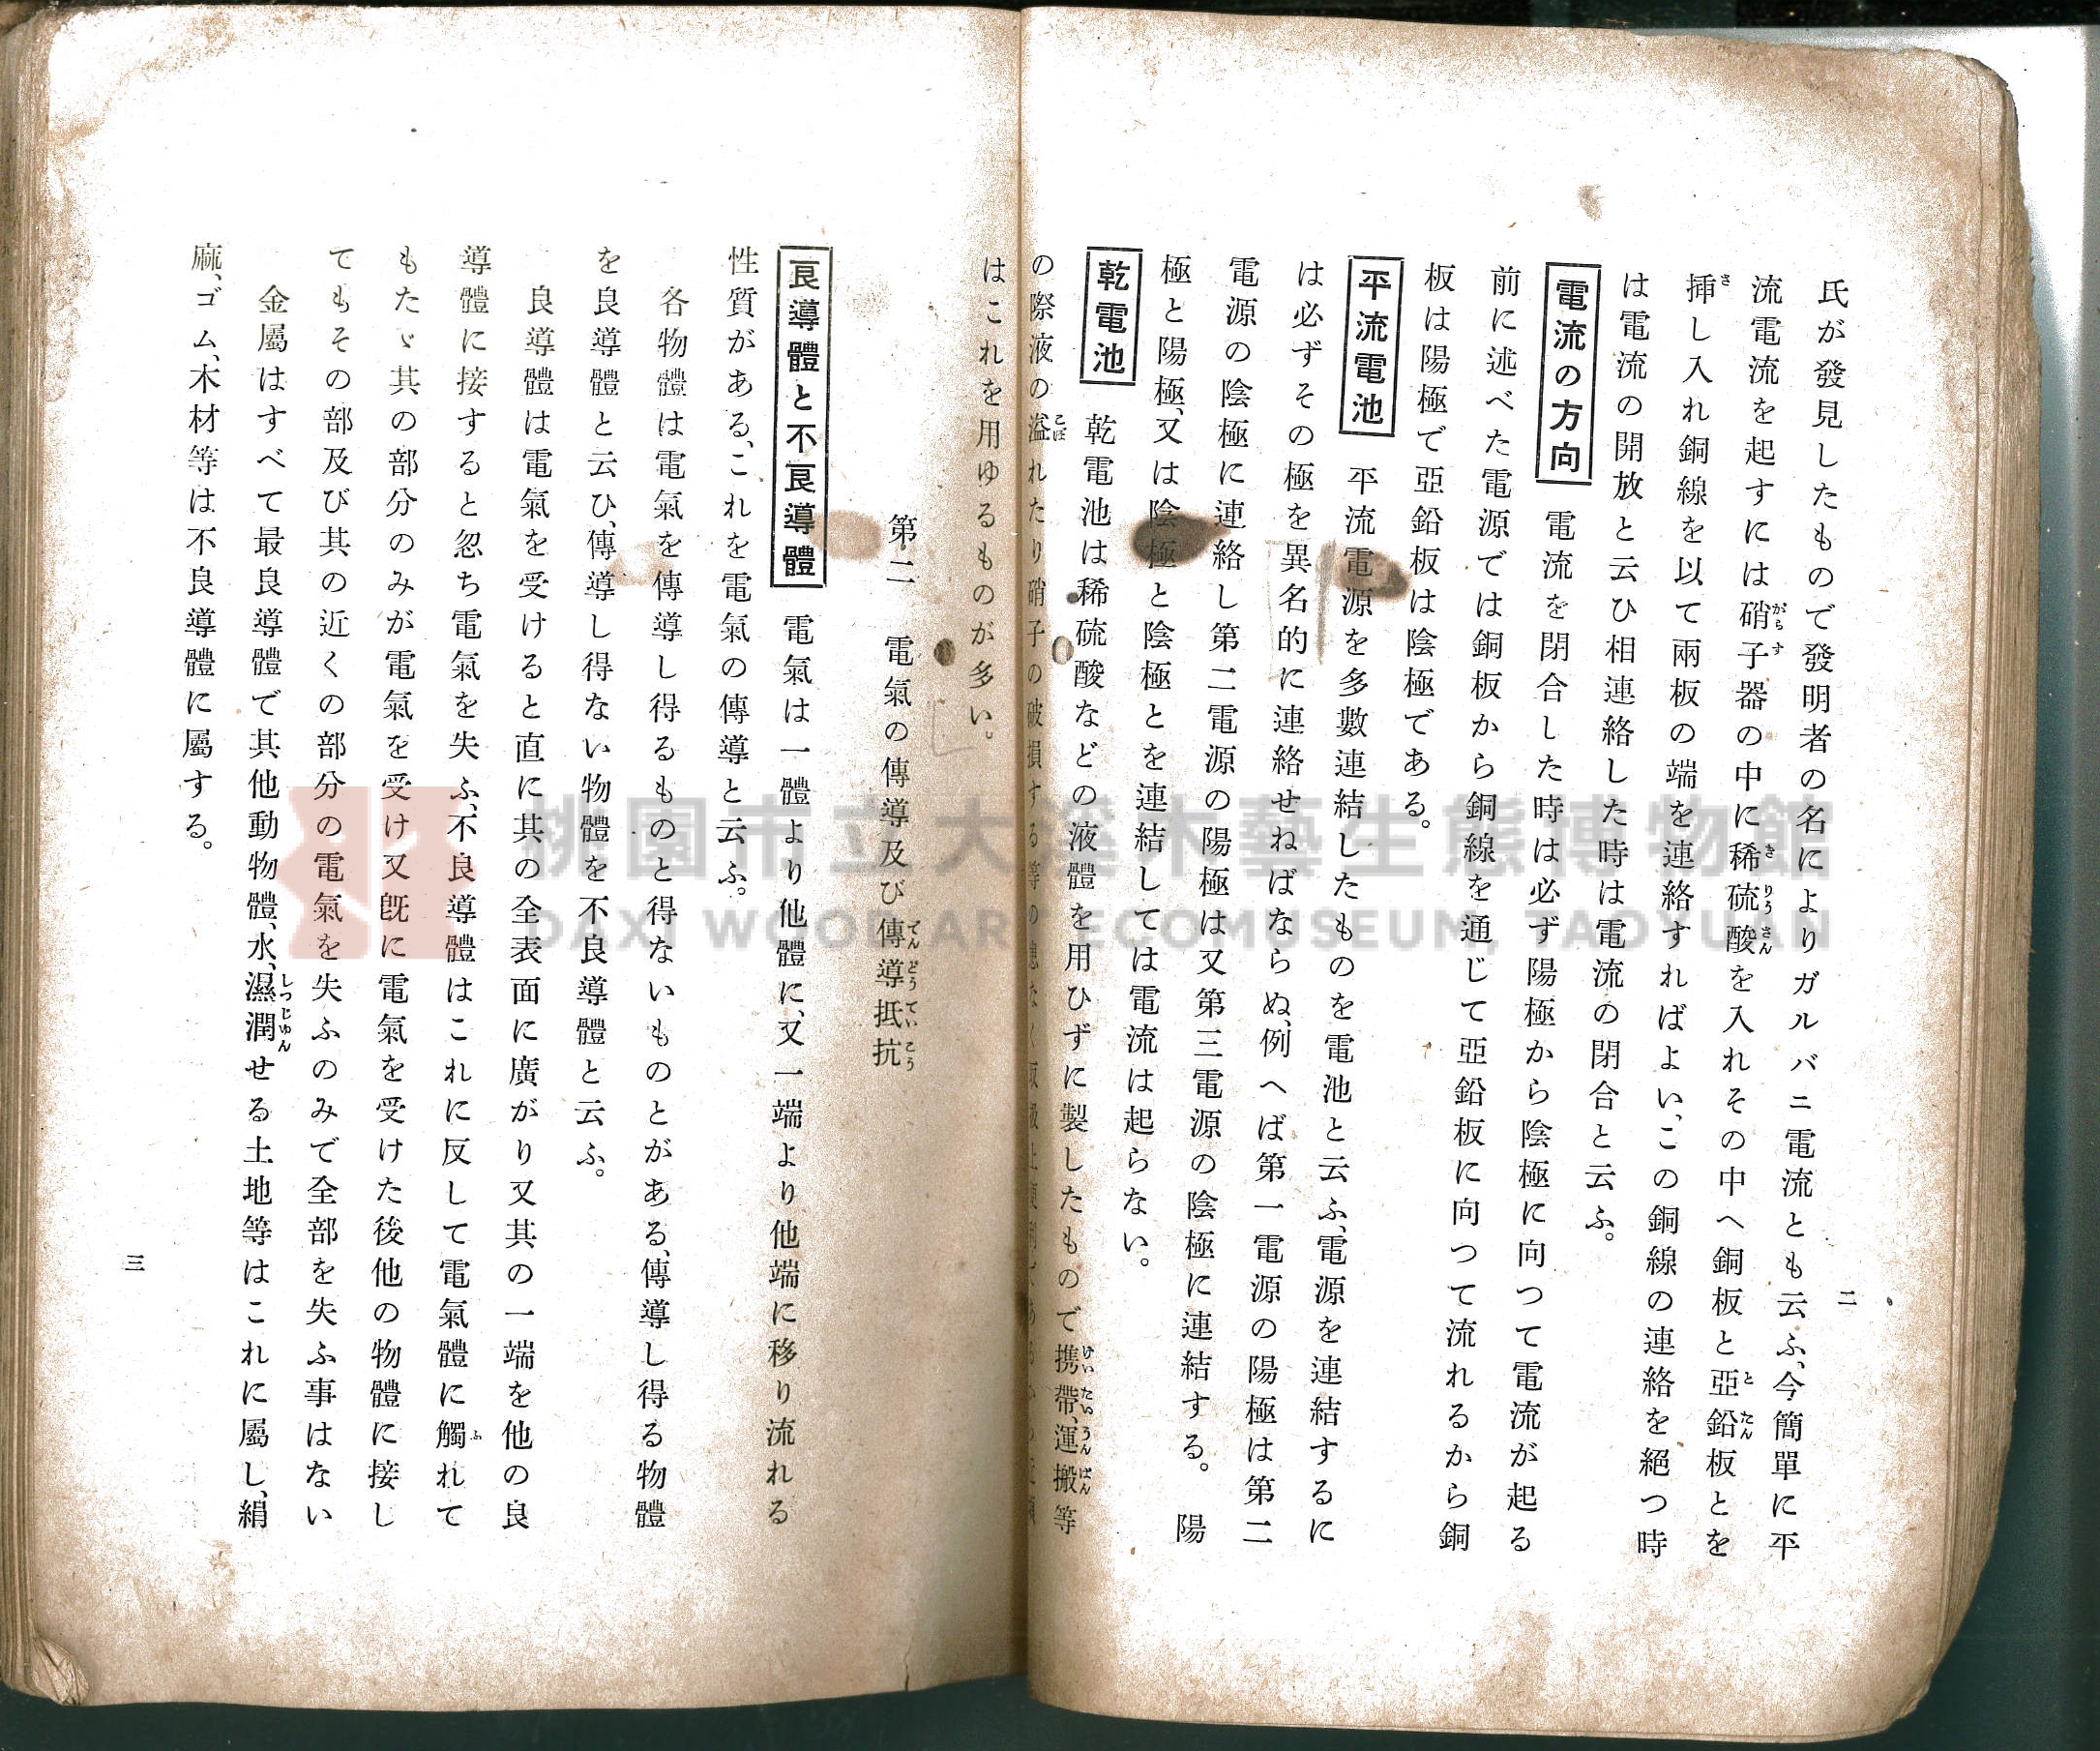 二
氏が發見したもので發明者の名によりガルバニ電流とも云ふ、今簡單に平
流電流を起すには硝子器の中に稀硫酸を入れその中へ銅板と亞鉛板とを
挿し入れ銅線を以て兩板の端を連絡すればよい、この銅線の連絡を絕つ時
は電流の開放と云ひ相連絡した時は電流の閉合と云ふ。
電流の方向 電流を閉合した時は必ず陽極から陰極に向つて電流が起る
前に述べた電源では銅板から銅線を通じて亞鉛板に向つて流れるから銅
板は陽極で亞鉛板は陰極である。
平流電池 平流電源を多數連結したものを電池と云ふ、電源を連結するに
は必ずその極を異名的に連絡せねばならぬ、例へば第一電源の陽極は第二
電源の陰極に連絡し第二電源の陽極は又第三電源の陰極に連結する。陽
極と陽極、又は陰極と陰極とを連結しては電流は起らない。
乾電池 乾電池は稀硫酸などの液體を用ひずに製したもので携帶、運搬等
の際液の溢れたり硝子の破損する等の
はこれを用ゆるものが多い。
第二 電氣の傳導及び傳導抵抗
良導體と不良導體 電氣は一體より他體に、又一端より他端に移り流れる
性質がある、これを電氣の傳導と云ふ。
各物體は電氣を傳導し得るものと得ないものとがある、傳導し得る物體
を良導體と云ひ、傳導し得ない物體を不良導體と云ふ。
良導體は電氣を受けると直に其の全表面に廣がり又其の一端を他の良
導體に接すると忽ち電氣を失ふ、不良導體はこれに反して電氣體に觸れて
もたゞ其の部分のみが電氣を受け又既に電氣を受けた後他の物體に接し
てもその部及び其の近くの部分の電氣を失ふのみで全部を失ふ事はない
金屬はすべて最良導體で其他動物體、水、濕潤せる土地等はこれに屬し、絹
麻、ゴム、木材等は不良導體に屬する。
三
桃園市立大溪木藝生態博物館
DAXI WOOD ART ECOMUSEUM, TAOYUAN